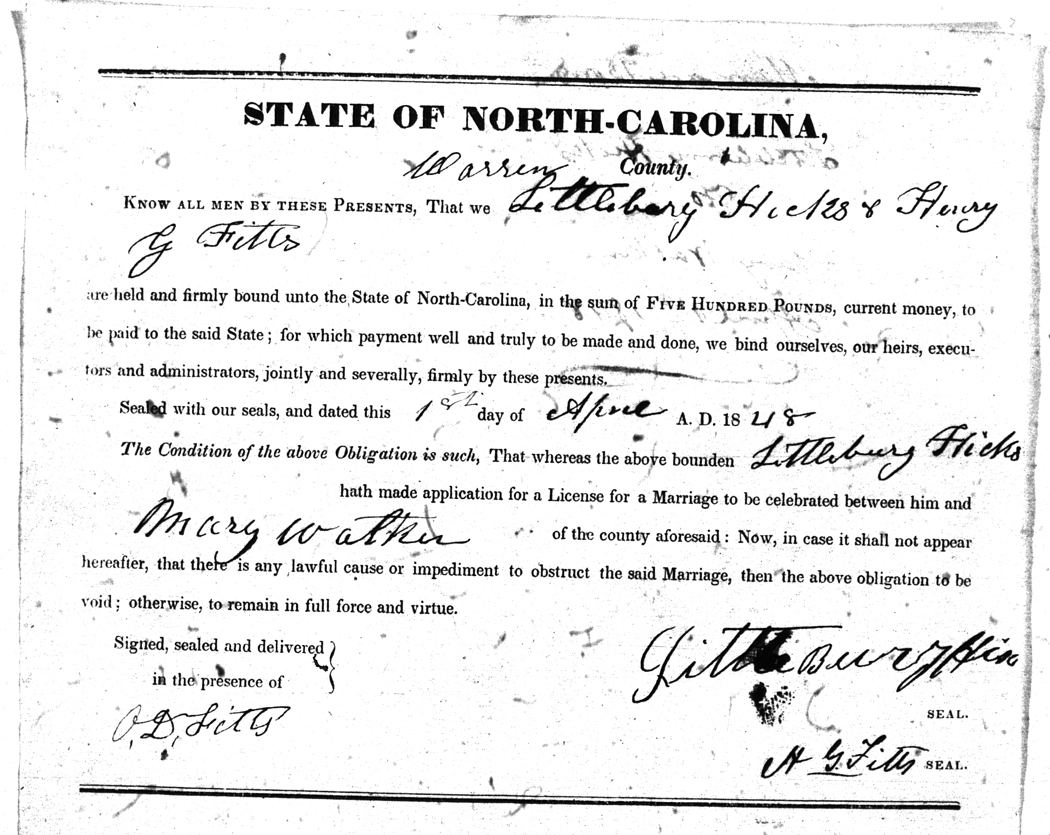 STATE OF NORTH-CAROLINA,
Warren County.
KNOW ALL MEN BY THESE PRESENTS, That we Littlebury Hicks & Henry
G Fitts
are held and firmly bound unto the State of North-Carolina, in the sum of FIVE HUNDRED POUNDS, current money, to
be paid to the said State; for which payment well and truly to be made and done, we bind ourselves, our heirs, execu-
tors and administrators, jointly and severally, firmly by these presents.
Sealed with our seals, and dated this 1st day of April A. D. 1848
The Condition of the above Obligation is such, That whereas the above bounden Littlebury Hicks
hath made application for a License for a Marriage to be celebrated between him and
Mary Walker of the county aforesaid: Now, in case it shall not appear
hereafter, that there is any lawful cause or impediment to obstruct the said Marriage, then the above obligation to be
void; otherwise, to remain in full force and virtue.
Signed, sealed and delivered
in the presence of
LittleBury Hix
SEAL.
O. D. Fitts
H G. Fitts SEAL.